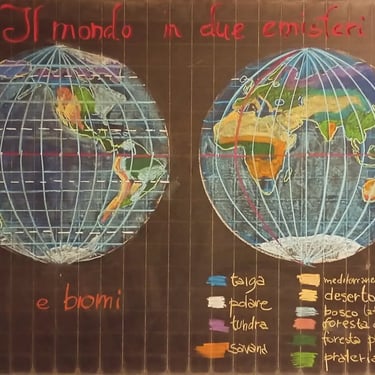 Il mondo in due emisferi
e biomi
taiga
polare
tundra
savana
mediterrane
deserto
bosco lat
foresta
foresta p
prateria